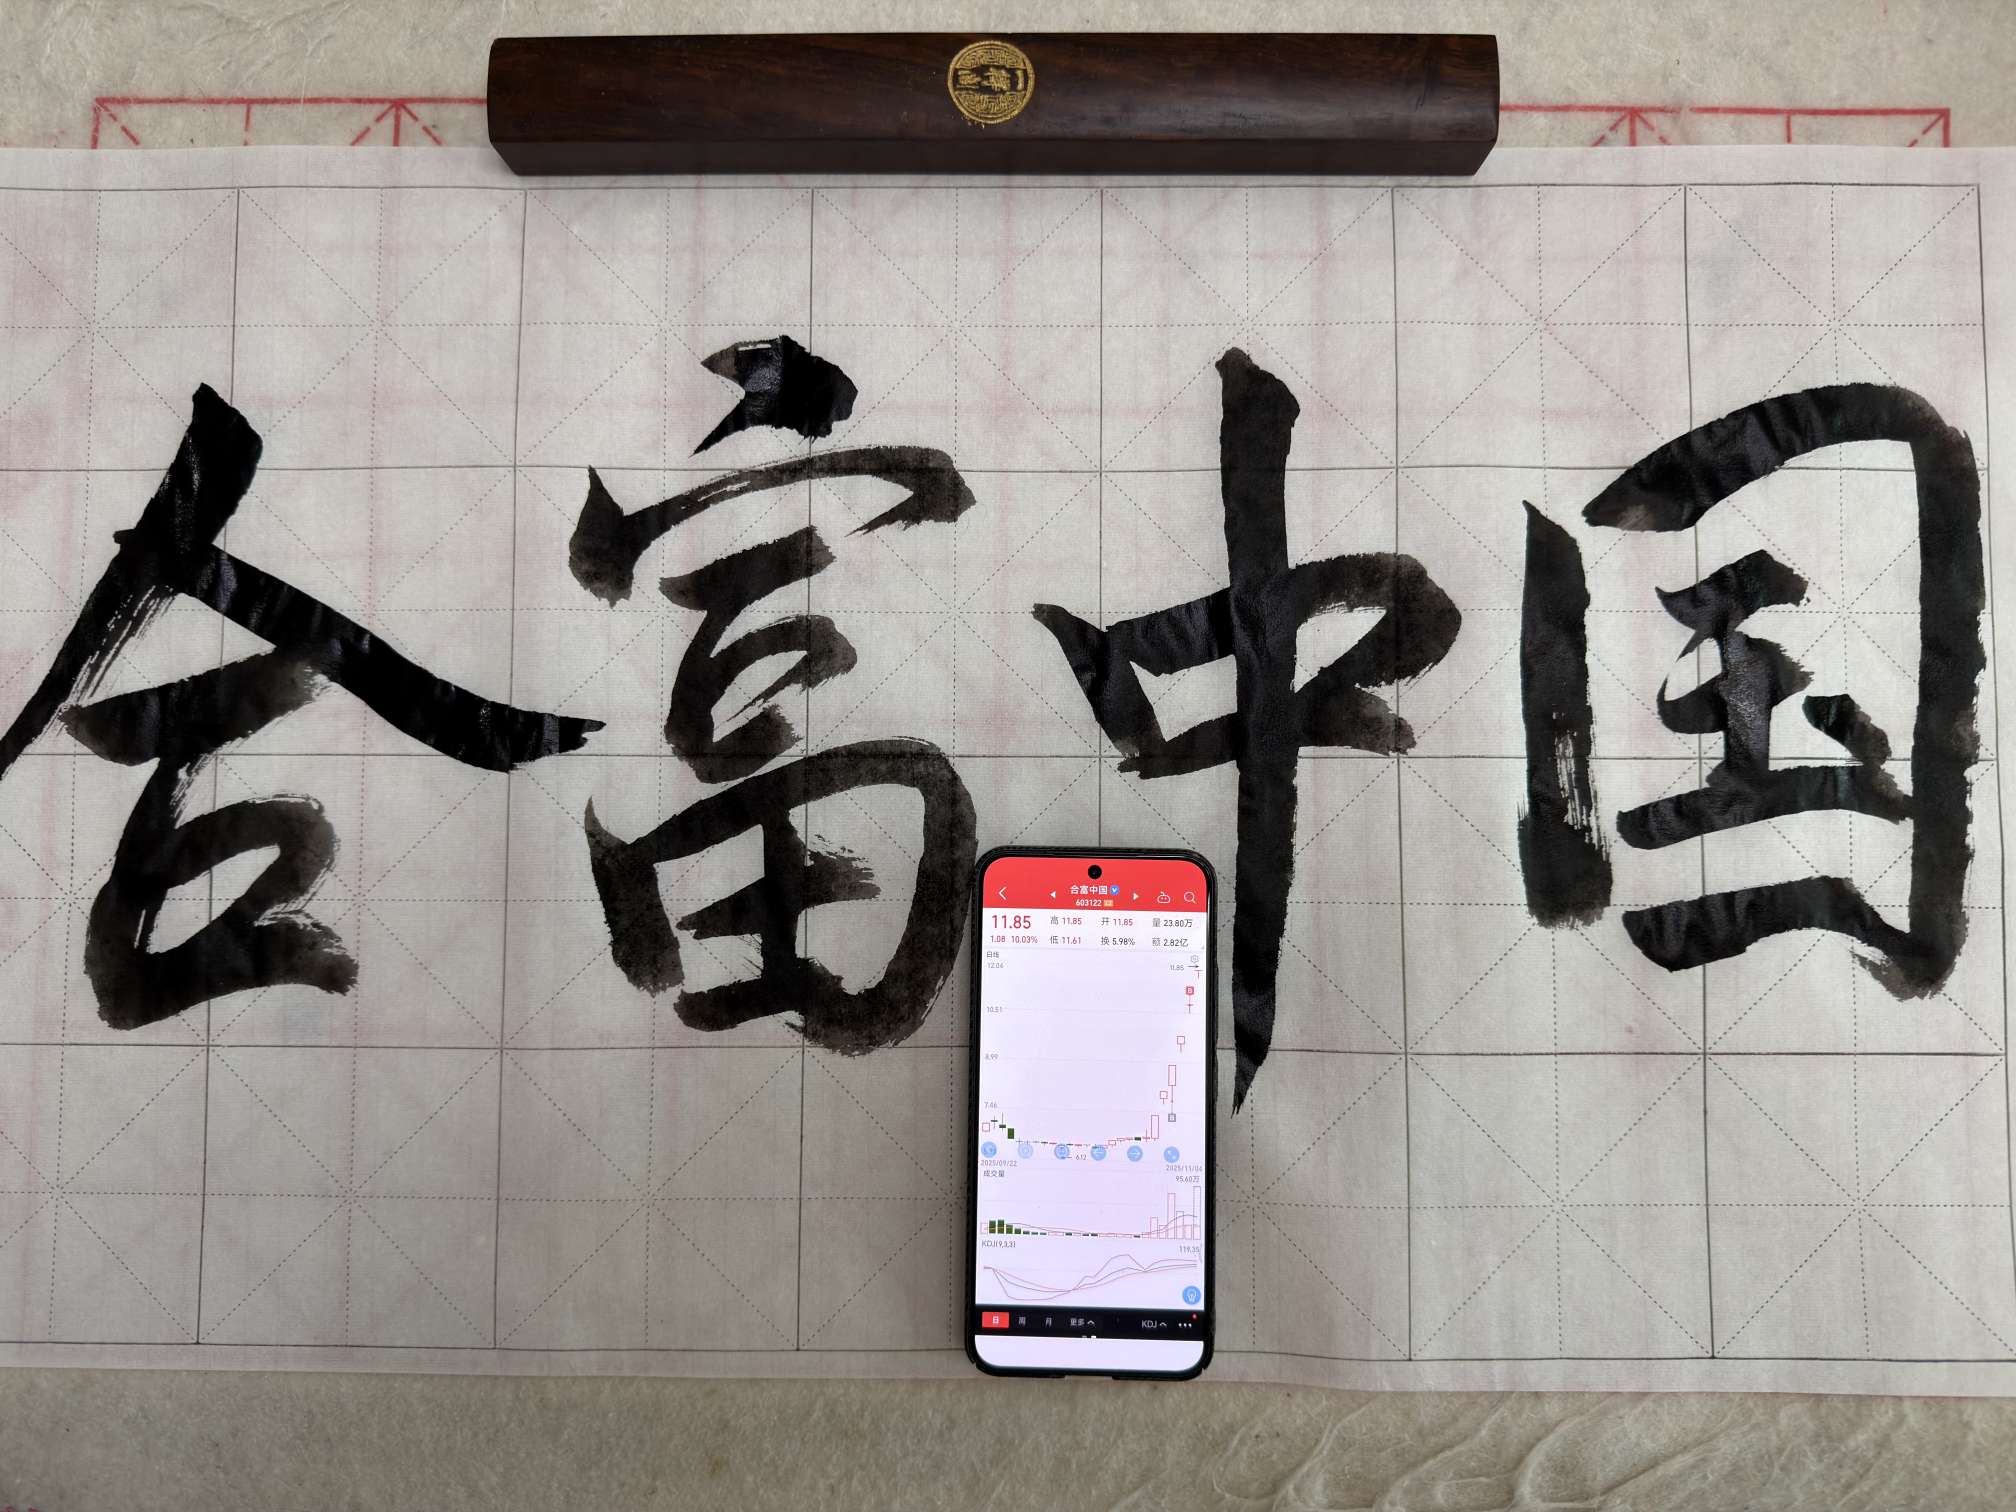 合富中国
合富中国
603122
11.85 高 11.85 开 11.85 量 23.80万
1.08 10.03% 低 11.61 换 5.98% 额 2.82亿
日线
12.04
11.85
B
10.51
8.99
7.46
B
6.12
2025/09/22 2025/11/04
成交量 95.60万
KDJ(9,3,3) 119.35
日 周 月 更多 KDJ